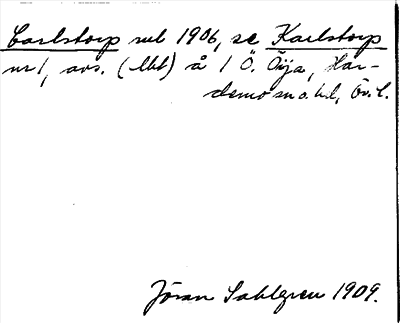 Carlstorp rul 1906, se Karlstorp
nr 1, avs. (lht) å 1 Ö. Öja, Har-
demo sn o. hd, Ör. l.
Jöran Sahlgren 1909.